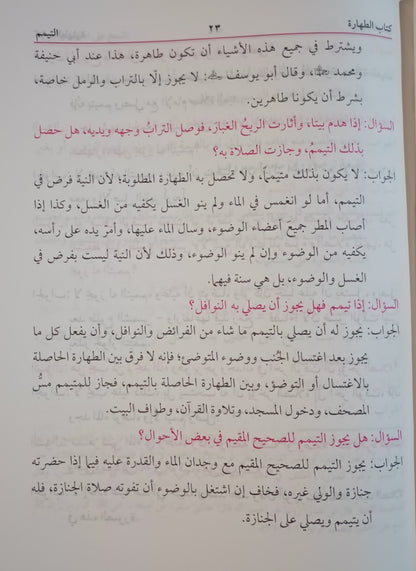 كتاب الطهارة ٢٣ التيمم
ويشترط في جميع هذه الأشياء أن تكون طاهرة، هذا عند أبي حنيفة
ومحمد رحمهما الله، وقال أبو يوسف رحمه الله: لا يجوز إلّا بالتراب والرمل خاصة،
بشرط أن يكونا طاهرين.
السؤال: إذا هدم بيتا، وأثارت الريحُ الغبارَ، فوصل الترابُ وجهه ويديه، هل حصل
بذلك التيممُ، وجازت الصلاة به؟
الجواب: لا يكون بذلك متيمماً، ولا تحصل به الطهارة المطلوبة؛ لأن النية فرض في
التيمم، أما لو انغمس في الماء ولم ينو الغسل يكفيه من الغسل، وكذا إذا
أصاب المطر جميعَ أعضاء الوضوء، وسال الماء عليها، وأمرّ يده على رأسه،
يكفيه من الوضوء وإن لم ينو الوضوء، وذلك لأن النية ليست بفرض في
الغسل والوضوء، بل هي سنة فيهما.
السؤال: إذا تيمم فهل يجوز أن يصلي به النوافل؟
الجواب: يجوز له أن يصلي بالتيمم ما شاء من الفرائض والنوافل، وأن يفعل كل ما
يجوز بعد اغتسال الجُنب ووضوء المتوضئ؛ فإنه لا فرق بين الطهارة الحاصلة
بالاغتسال أو التوضؤ، وبين الطهارة الحاصلة بالتيمم، فجاز للمتيمم مسُّ
المصحف، ودخول المسجد، وتلاوة القرآن، وطواف البيت.
السؤال: هل يجوز التيمم للصحيح المقيم في بعض الأحوال؟
الجواب: يجوز التيمم للصحيح المقيم مع وجدان الماء والقدرة عليه فيما إذا حضرته
جنازة والولي غيره، فخاف إن اشتغل بالوضوء أن تفوته صلاة الجنازة، فله
أن يتيمم ويصلي على الجنازة.